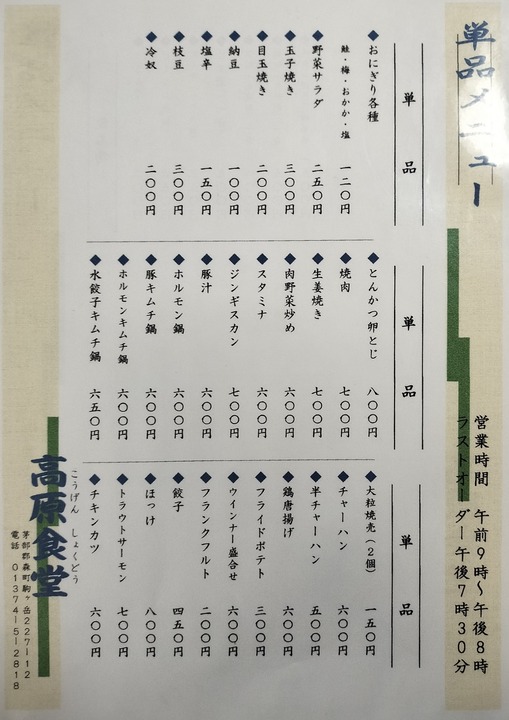 単品メニュー
営業時間 午前9時〜午後8時
ラストオーダー午後7時30分
単品
◆おにぎり各種
鮭・梅・おかか・塩 一二〇円
◆野菜サラダ 二五〇円
◆玉子焼き 三〇〇円
◆目玉焼き 二〇〇円
◆納豆 一〇〇円
◆塩辛 一五〇円
◆枝豆 三〇〇円
◆冷奴 二〇〇円
単品
◆とんかつ卵とじ 八〇〇円
◆焼肉 七〇〇円
◆生姜焼き 七〇〇円
◆肉野菜炒め 六〇〇円
◆スタミナ 六〇〇円
◆ジンギスカン 七〇〇円
◆豚汁 六〇〇円
◆ホルモン鍋 六〇〇円
◆豚キムチ鍋 六〇〇円
◆ホルモンキムチ鍋 六〇〇円
◆水餃子キムチ鍋 六五〇円
単品
◆大粒焼売(2個) 一五〇円
◆チャーハン 六〇〇円
◆半チャーハン 五〇〇円
◆鶏唐揚げ 六〇〇円
◆フライドポテト 三〇〇円
◆ウインナー盛合せ 六〇〇円
◆フランクフルト 二〇〇円
◆餃子 四五〇円
◆ほっけ 八〇〇円
◆トラウトサーモン 七〇〇円
◆チキンカツ 六〇〇円
こうげん しょくどう
高原食堂
茅部郡森町駒ヶ岳227-12
電話 01374-5-2818